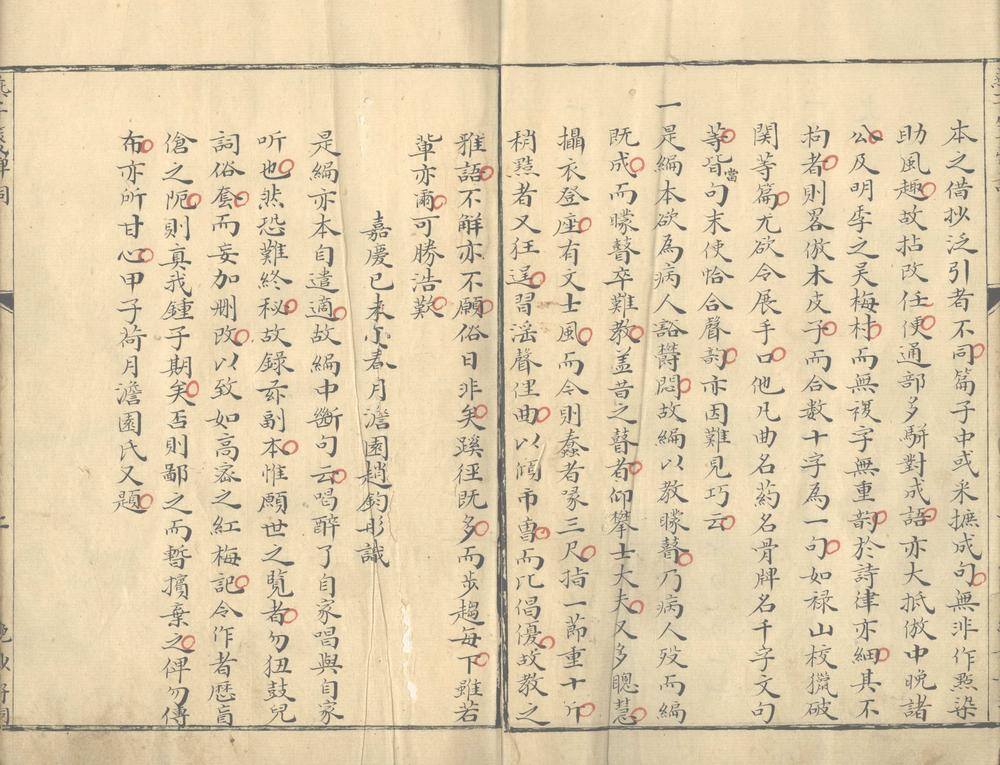 本之借抄泛引者不同篇子中或采摭成句無非作點染
助風趣故拈改任便通部多駢對成語亦大抵倣中晚諸
公及明季之吳梅村而無複字無重韵於詩律亦細其不
拘者則畧倣木皮子而合數十字為一句如禄山校獵破
関等篇尤欲令展手口他凡曲名葯名骨牌名千字文句
等皆當句末使恰合聲韵亦因難見巧云
一是編本欲為病人豁欝悶故編以教矇瞽乃病人歿而編
既成而矇瞽卒難教盖昔之瞽者仰攀士大夫又多聰慧
攝衣登座有文士風而今則蠢者豕三尺指一莭重十斤
稍黠者又狂逞習滛聲俚曲以傾市曹而比倡優故教之
雅語不解亦不願俗日非矣蹊徑既多而步趨每下雖若
輩亦爾可勝浩歎
嘉慶己未小春月澹園趙鈞彤識
是編亦本自遣適故編中斷句云喝醉了自家唱與自家
听也然恐難終秘故録亦副本惟願世之覧者勿狃鼓兒
詞俗套而妄加删改以致如高宻之紅梅記令作者歴盲
傖之阨則真我鍾子期矣否則鄙之而暫擯棄之俾勿傳
布亦所甘心甲子荷月澹園氏又題